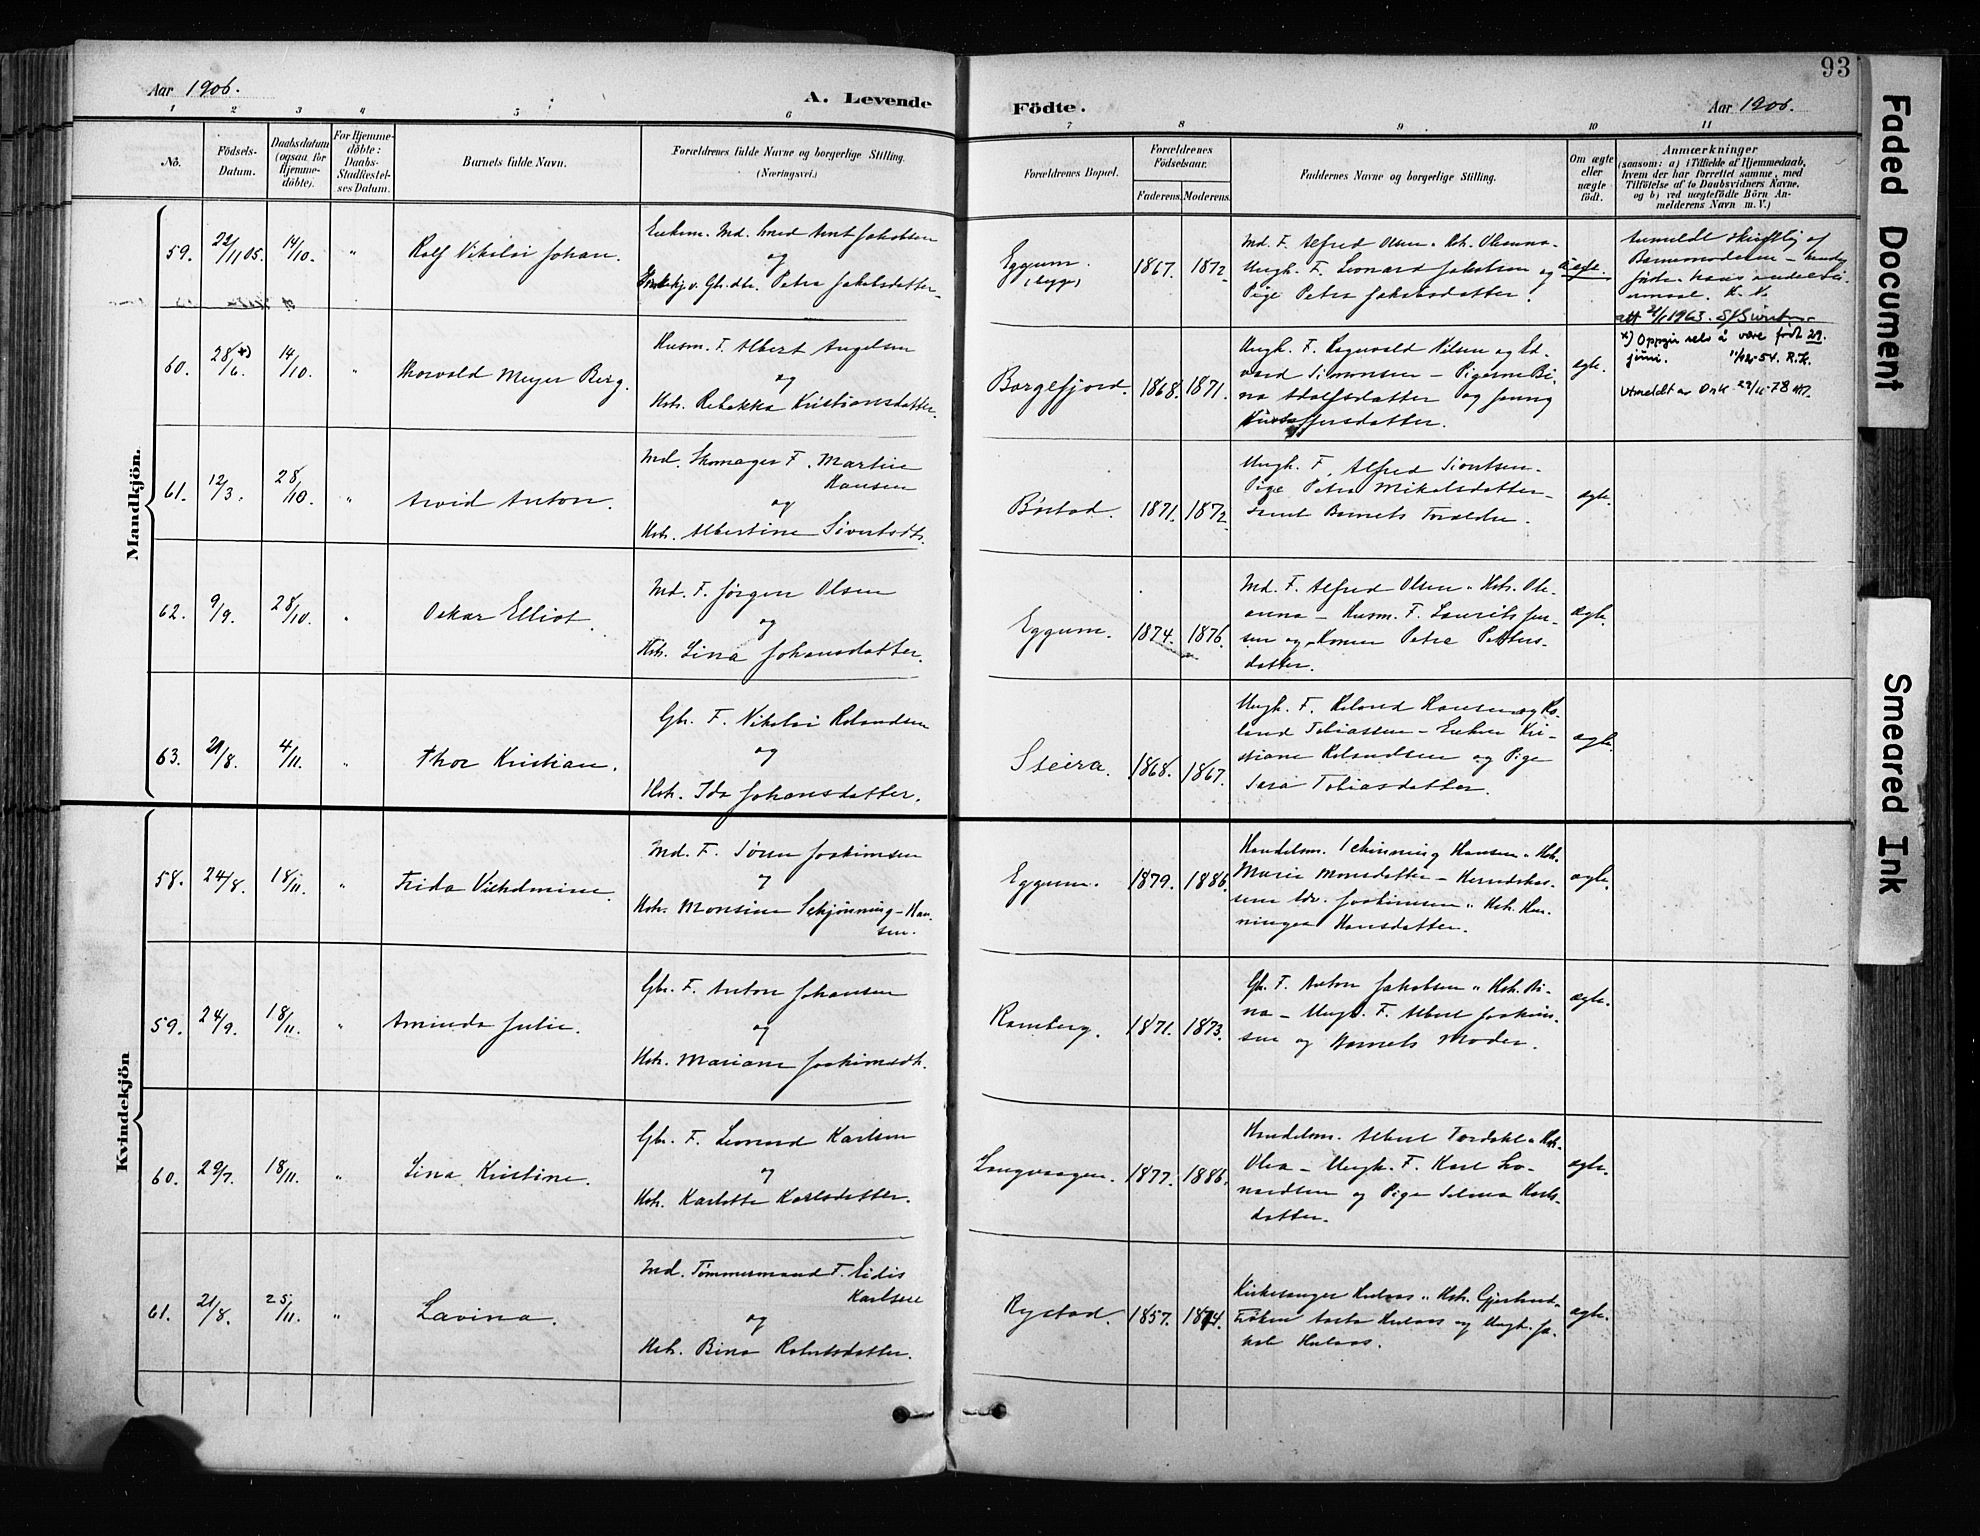 93
Aar 1906.
A. Levende
Födte.
Aar 1906.
1 2 3 4 5 6 7 8 9 10 11
No.
Födsels-Datum.
Daabsdatum (ogsaa for Hjemme-döbte).
For Hjemme-döbte: Daabs-Stadfæstel-ses Datum.
Barnets fulde Navn.
Forældrenes fulde Navne og borgerlige Stilling.
(Næringsvei.)
Forældrenes Bopæl.
Forældrenes Födselsaar.
Faderens. Moderens.
Faddernes Navne og borgerlige Stilling.
Om ægte eller uægte födt.
Anmærkninger
(saasom: a) i Tilfælde af Hjemmedaab,
hvem der har forrettet samme, med
Tilföielse af to Daabsvidners Navne,
og b) ved uægtefödte Börn An-
melderens Navn m. V.)
Mandkjön.
59. 22/11 05. 14/10. " Rolf Nikolai Johan.
Enkem. Md. Arnt Jakobsen
og
Petra Jakobsdatter
Eggum.
1867. 1872
Md. F. Alfred Olsen
Ungk. F. Leonard Jakobsen og
Pige Petra Jakobsdatter.
Anmeldt skriftlig af
Barnemoderen
60. 28/6. *) 14/10. " Thorvald Meyer Berg.
Husm. F. Albert Angelsen
og
Hstr. Rebekka Kristiansdatter.
Borgefjord.
1868. 1871.
Ungk. F. Ragnvald Nilsen og Ed-
vard Simonsen – Pigerne Bi-
na Adolfsdatter og Jenny
ægte.
*) Oppgir selv å være født 29.
juni. 11/12-54. R.K.
Utmeldt av Dnk 29/11-78
61. 12/3. 28/10. " Arvid Anton.
Md. Skomager F. Martin
Hansen
og
Hstr. Albertine Sivertsdtr.
Børstad.
1871. 1872.
Ungk. F. Alfred Sivertsen
Pige Petra Mikalsdatter
samt Barnets Forældre.
ægte.
62. 9/9. 28/10. " Oskar Elliot.
Md. F. Jørgen Olsen
og
Hstr. Lina Johansdatter.
Eggum.
1874. 1876.
Md. F. Alfred Olsen " Hstr. Ole-
anna – Husm. F. Laurits Jen-
sen og Konen Petra Petters-
datter.
ægte.
63. 21/8. 4/11. " Thor Kristian.
Gbr. F. Nikolai Rolandsen
og
Hstr. Ida Johansdatter.
Steira.
1868. 1867.
Ungk. F. Roland Hansen og Ro-
land Tobiassen – Enken Kri-
stiane Rolandsen og Pige
Sara Tobiasdatter.
ægte.
Kvindekjön
58. 24/8. 18/11. " Frida Vilhelmine.
Md. F. Sören Joakimsen
og
Hstr. Monsine Schjønning-Han-
sen.
Eggum.
1879. 1886.
Handelsm. Schønning Hansen " Hstr.
Maria Monsdatter – Herredskas-
serer Edv. Joakimsen " Hstr. Hen-
ninga Hansdatter.
ægte.
59. 24/9. 18/11. " Aminda Julie.
Gbr. F. Anton Johansen
og
Hstr. Mariane Joakimsdtr.
Ramberg.
1871. 1873.
Gbr. F. Anton Jakobsen " Hstr. Bi-
na – Ungk. F. Albert Joakim-
sen og Barnets Moder.
ægte.
60. 29/7. 18/11. " Lina Kristine.
Gbr. F. Leonard Karlsen
og
Hstr. Karlotte Karlsdatter.
Langvaagen.
1877. 1886.
Handelsm. Albert Tordahl " Hstr.
Olea – Ungk. F. Karl Leo-
nardsen og Pige Selma Karls-
datter.
ægte.
61. 21/8. 25/11. " Lavina.
Md. Tømmermand F. Eidis
Karlsen
og
Hstr. Bina Robertsdatter.
Rystad.
1857. 1874.
Kirkesanger Hulaas " Hstr. Gjertrud
Frøken Aasta Hulaas og Ungk. Ja-
kob Hulaas.
ægte.
Faded Document
Smeared Ink